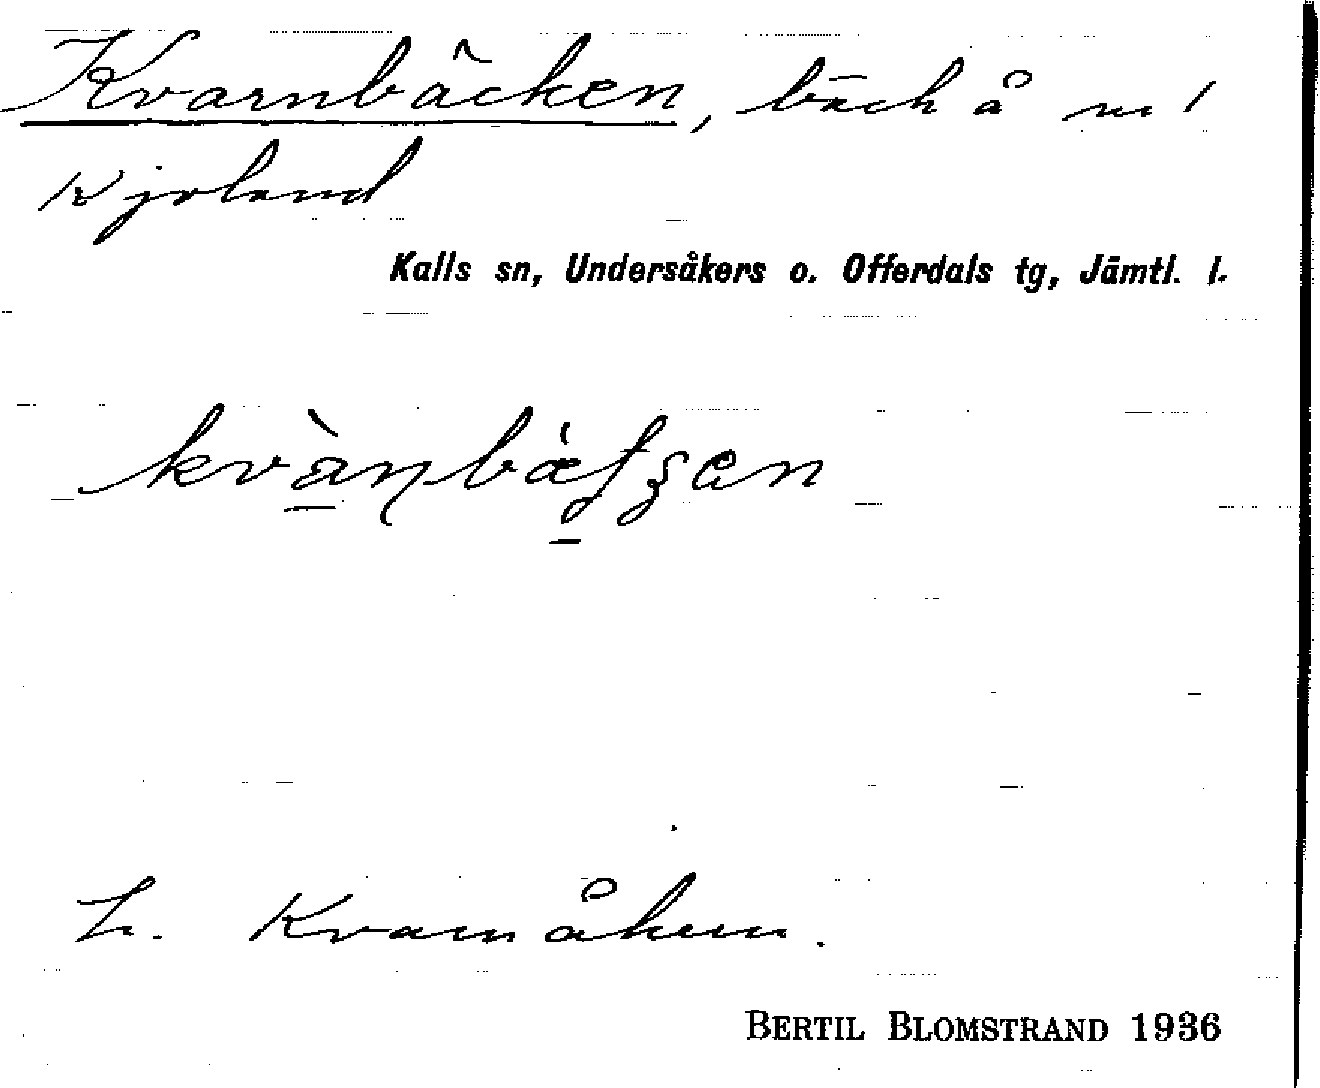 Kvarnbäcken, bäck å nr 1
Kjoland
Kalls sn, Undersåkers o. Offerdals tg, Jämtl. l.
L. Kvarnåkern.
BERTIL BLOMSTRAND 1936